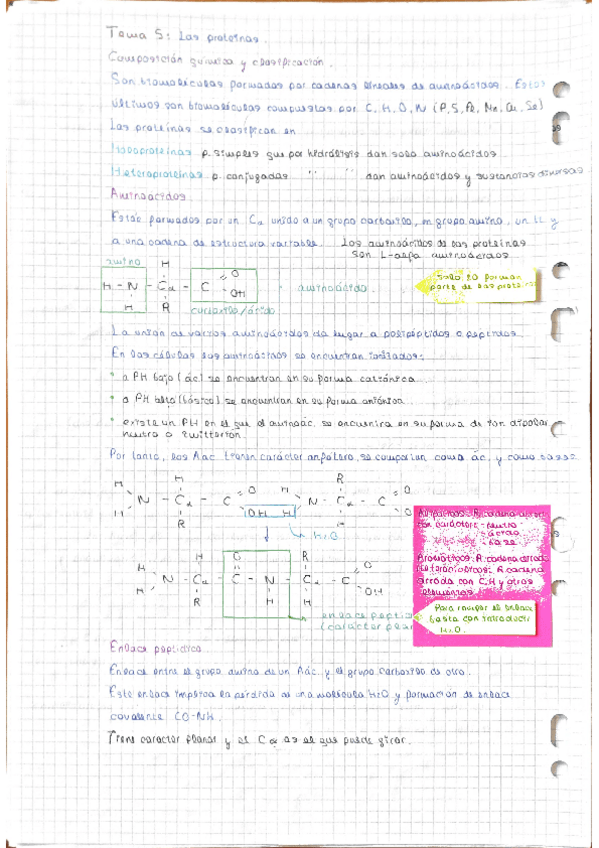 Tema 5: Las proteínas.
Composición química y clasificación.
Son biomoléculas formadas por cadenas lineales de aminoácidos. Estos
últimos son biomoléculas compuestas por C, H, O, N (P, S, Fe, Mn, Cu, Se)
Las proteínas se clasifican en
Holoproteínas p. simples que por hidrólisis dan solo aminoácidos.
Heteroproteínas p. conjugadas " " dan aminoácidos y sustancias diversas
Aminoácidos.
Están formados por un Cα unido a un grupo carboxilo, un grupo amino, un H y
a una cadena de estructura variable. Los aminoácidos de las proteínas
son L-alfa aminoácidos
amino
H
H - N - Cα - C = O
OH
H R
carboxilo/ácido
aminoácido.
Solo 20 forman
parte de las proteínas
La unión de varios aminoácidos da lugar a polipéptidos o péptidos.
En las células los aminoácidos se encuentran ionizados:
a PH bajo (ác) se encuentran en su forma catiónica
a PH bajo (básico) se encuentran en su forma aniónica
existe un PH en el que el aminoác. se encuentra en su forma de ion dipolar
neutro o zwitterión.
Por tanto, los Aac tienen carácter anfótero, se comportan como ác. y como bases.
H H O H R O
N - Cα - C N - Cα - C
H R OH H H O
H₂O
H H O R O
N - Cα - C - N - Cα - C
H R H H OH
enlace peptí
(carácter plan
R cadena
con carácter: - neutro
- ácido
- base
Aromáticos: R cadena cerrada
Heterocíclicos: R cadena
cerrada con C, H y otros
elementos
Para romper el enlace
basta con introducir
H₂O.
Enlace peptídico
Enlace entre el grupo amino de un Aác. y el grupo carboxilo de otro.
Este enlace implica la pérdida de una molécula H₂O y formación de enlace
covalente CO-NH.
Tiene carácter planar y el Cα es el que puede girar.